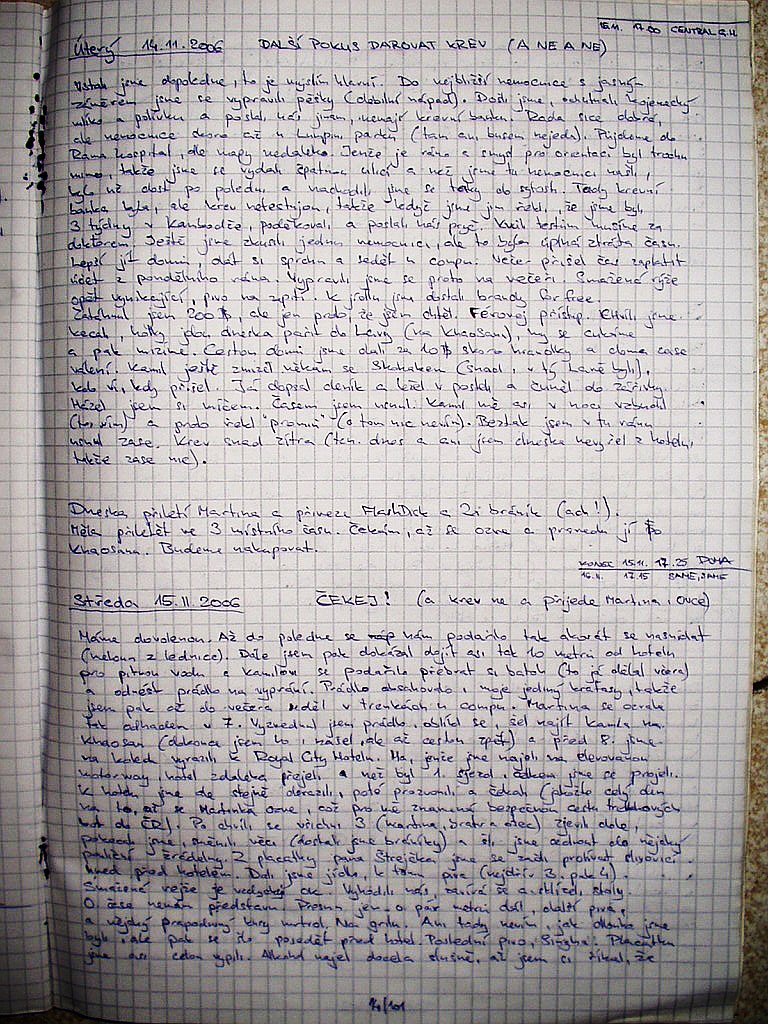 15.11. 17.00 CENTRAL G.H.
Úterý 14.11.2006 DALŠÍ POKUS DAROVAT KREV (A NE A NE)
Vstali jsme dopoledne, to je myslím hlavní. Do nejbližší nemocnice s jasným
záměrem jsme se vypravili pěšky (debilní nápad). Došli jsme, kojenecký
mléko a polívku a poslali nás jinam, nemají krevní banku. Rada sice dobrá,
ale nemocnice skoro až u Lumpini parku (tam ani busem nejedu). Půjdeme do
Rama hospital, dle mapy nedaleko. Jenže je ráno a smysl pro orientaci byl trochu
mimo, takže jsme se vydali špatnou ulicí a než jsme tu nemocnici našli,
bylo už dost po poledni a nachodili jsme se taky do sytosti. Tady krevní
banka byla, ale krev netestujou, takže když jsme jim řekli, že jsme byli
3 týdny v Kambodže, poděkovali a poslali nás pryč. Kvůli testům musíme za
doktorem. Ještě jsme zkusili jednu nemocnici, ale to byla úplná ztráta času.
Lepší jít domů, dát si sprchu a sedět u compu. Večer přišel čas zaplatit
účet z pondělního rána. Vypravili jsme se proto na večeři. Smažená rýže
opět vynikající, pivo na zapití. K jídlu jsme dostali brandy for free.
Zatáhnul jsem 200 ฿, ale jen proto, že jsem chtěl. Férovej přístup. Chvíli jsme
kecali, holky jdou dneska pařit do (na Khaosanu), my se cukáme
a pak mizíme. Cestou domů jsme dali za 10฿ skoro hranolky a doma zase
válení. Kamil ještě zmizel někam se Skotákem (snad, v tý baně byli),
kdo ví, kdy přišel. Já dopsal deník a ležel v posteli a čuměl do zářivky.
Házel jsem si míčem. Časem jsem usnul. Kamil mě asi v noci vzbudil
(to vím) a prdo řekl "promiň" (o tom nic nevím). Beztak jsem v tu ránu
usnul zase. Krev snad zítra (tzn. dnes a ani jsem dneska nevyšel z hotelu,
takže zase nic).
Dneska přiletí Martina a přiveze FlashDisk a 2i bráník (ach!).
Měla přiletět ve 3 místního času. Čekám, až se ozve a provedu jí po
Khaosanu. Budeme nakupovat.
KONEC 15.11. 17.25 DOMA
16.11. 17.15 SAME, SAME
Středa 15.11.2006 ČEKEJ! (a krev ne a přijede Martina, OVCE)
Máme dovolenou. Až do poledne se nám podařilo tak akorát se nasnídat
(meloun z lednice). Dále jsem pak dokázal dojít asi tak 10 metrů od hotelu
pro pitnou vodu a Kamilovi se podařilo přebrat si batoh (to já dělal včera)
a odnést prádlo na vyprání. Prádlo obsahovalo i moje jediný kraťasy, takže
jsem pak až do večera seděl v trenkách u compu. Martina se ozvala
tak odhadem v 7. Vyzvednul jsem prádlo, oblíkl se, šel najít Kamila na
Khaosan (dokonce jsem ho i našel, ale až cestou zpět) a před 8. jsme
na kolech vyrazili k Royal City Hotelu. Ha, jenže jsme najeli na elevovanou
motorway, hotel zdaleka přejeli a než byl 1. sjezd, jsme se projeli.
K hotelu jsme ale stejně dorazili, poté prozvonili a čekali (jakožto celý den
na to, až se Martinka ozve, což pro mě znamená bezpečnou cestu trekových
bot do ČR). Po chvíli se všichni 3 (Martina, bratr a otec) zjevili dole,
pokecali jsme, směnili věci (dostali jsme bráníky) a šli jsme sednout do nějaký
pouliční žrádelny. Z placatky pana Strejčka jsme se začli prolívat slivovicí
hned před hotelem. Dali jsme jídlo, k tomu piva (nejdřív 3, pak 4).
Smažená rejže je vždycky ok. Vyhodili nás, zavírá se a sklízej stoly.
O čase nemám představu. Přesun jen o pár metrů dál, další piva,
a nějaký prapodivný kusy na grilu. Ani tady nevím, jak dlouho jsme
byli, ale pak se šlo posedět před hotel. Poslední pivo, Singha. Placatku
jsme asi celou vypili. Alkohol najel docela slušně, až jsem si říkal, že
14/101